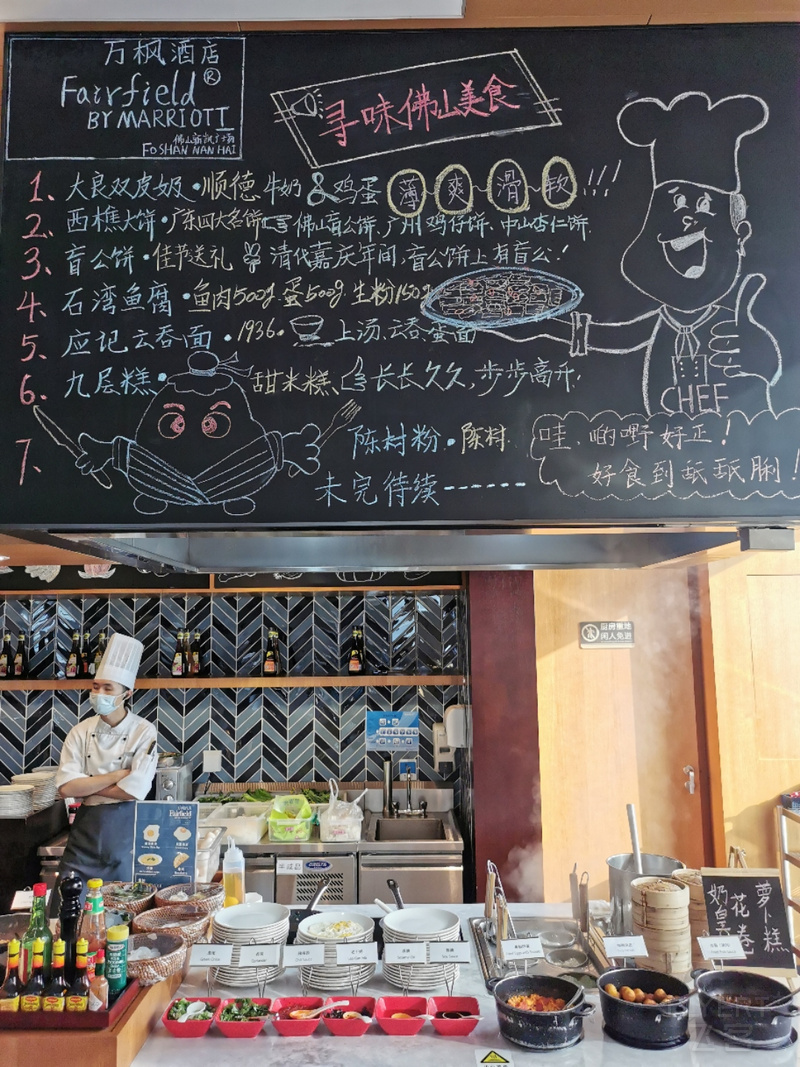 万枫酒店
Fairfield®
BY MARRIOTT
FOSHAN NAN HAI
寻味佛山美食
1、大良双皮奶·顺德 牛奶&鸡蛋 薄 爽 滑 软!!!
2、西樵大饼·广东四大名饼 佛山盲公饼、广州鸡仔饼、中山杏仁饼.
3、盲公饼·佳节送礼 清代嘉庆年间,盲公饼上有盲公!
4、石湾鱼腐·鱼肉500g.蛋500g.生粉150g
5、应记云吞面·1936· 上汤、云吞、蛋面
6、九层糕· 甜米糕 长长久久,步步高升.
7、陈村粉·陈村
未完待续------
CHEF
哇、啲嘢好正!
好食到舐舐脷!
厨房重地
闲人免进
Fairfield
萝卜糕
花卷
奶皇